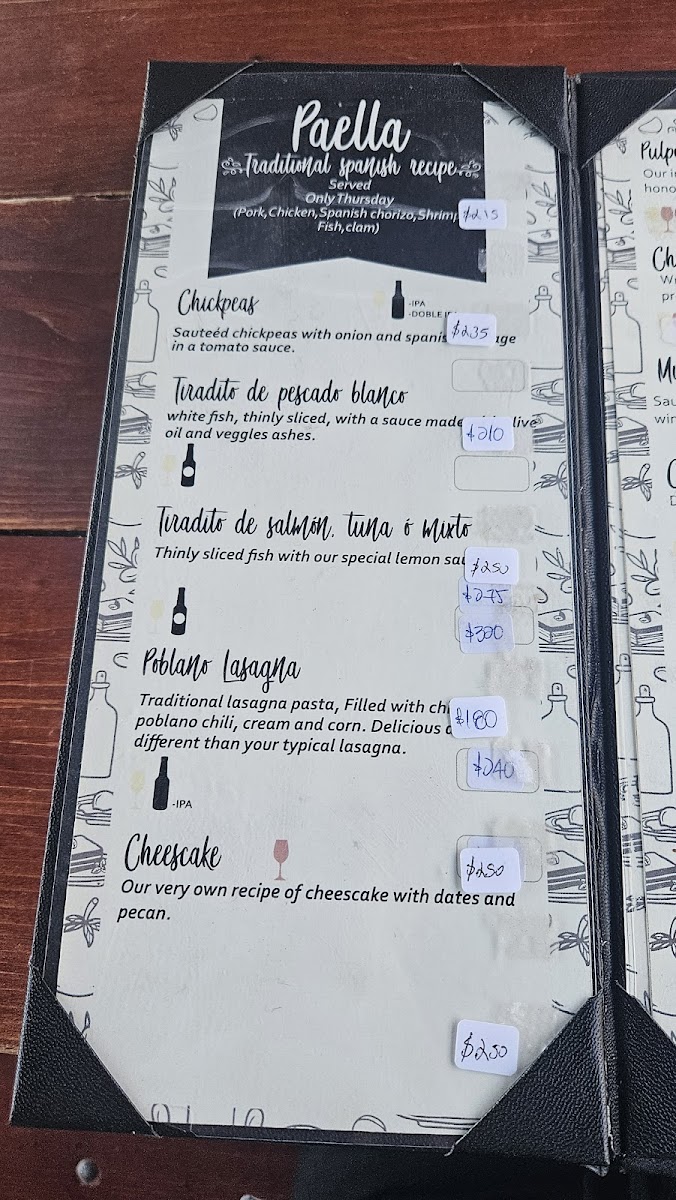 Paella
Traditional spanish recipe
Served
Only Thursday
(Pork,Chicken,Spanish chorizo,Shrim
Fish,clam)
$215
Chickpeas
-IPA
-DOBLE
$235
Sauteéd chickpeas with onion and spanis age
in a tomato sauce.
Tiradito de pescado blanco
white fish, thinly sliced, with a sauce made live
oil and veggles ashes.
$210
Tiradito de salmón, tuna ó mixto
Thinly sliced fish with our special lemon sau
$250
$275
$300
Poblano Lasagna
Traditional lasagna pasta, Filled with ch
poblano chili, cream and corn. Delicious
different than your typical lasagna.
$180
$240
-IPA
Cheescake
$250
Our very own recipe of cheescake with dates and
pecan.
$250
Pulp
Our i
hono
Ch
Wi
pr
Mu
Sau
win